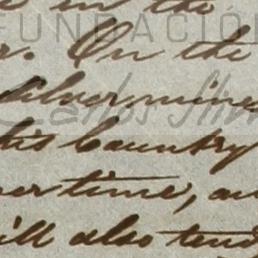 e in the
FUNDACIÓ
r. On the
Silver mines
Carlos Slim
this Country
er time, an
ill also tend